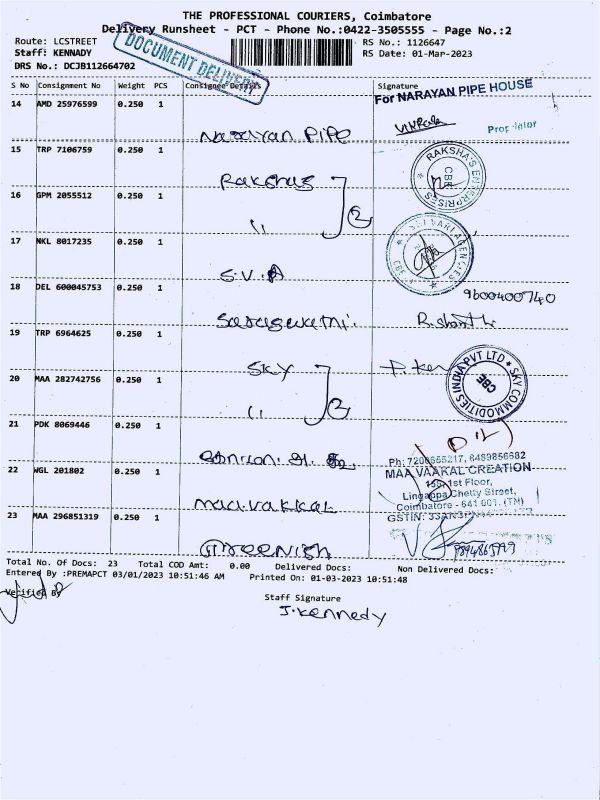 THE PROFESSIONAL COURIERS, Coimbatore
Delivery Runsheet - PCT - Phone No.:0422-3505555 - Page No.:2
Route: LCSTREET
RS No.: 1126647
Staff: KENNADY
RS Date: 01-Mar-2023
DRS No.: DCJB112664702
DOCUMENT DELIVERY
S No Consignment No Weight PCS Consignee Details Signature
For NARAYAN PIPE HOUSE
14 AMD 25976599 0.250 1
Narayan Pipe
Proprietor
15 TRP 7106759 0.250 1
Rakshas
RAKSHA'S ENTERPRISES
CBE
16 GPM 2055512 0.250 1
17 NKL 8017235 0.250 1
S.V.A
AGENCIES
CBE
18 DEL 600045753 0.250 1
9600400740
Saraswathi.
19 TRP 6964625 0.250 1
SKY
SKY COMMODITIES INDIA PVT LTD
CBE
20 MAA 282742756 0.250 1
21 PDK 8069446 0.250 1
Ph: 7200665217, 8489856682
22 NGL 201802 0.250 1
MAA VAAKAL CREATION
156, 1st Floor,
Lingappa Chetty Street,
Coimbatore - 641 001. (TN)
Maavakkal
GSTIN:
23 MAA 296851319 0.250 1
Greenish
Total No. Of Docs: 23 Total COD Amt: 0.00 Delivered Docs: Non Delivered Docs:
Entered By :PREMAPCT 03/01/2023 10:51:46 AM Printed On: 01-03-2023 10:51:48
Verified By
Staff Signature
J. Kennedy